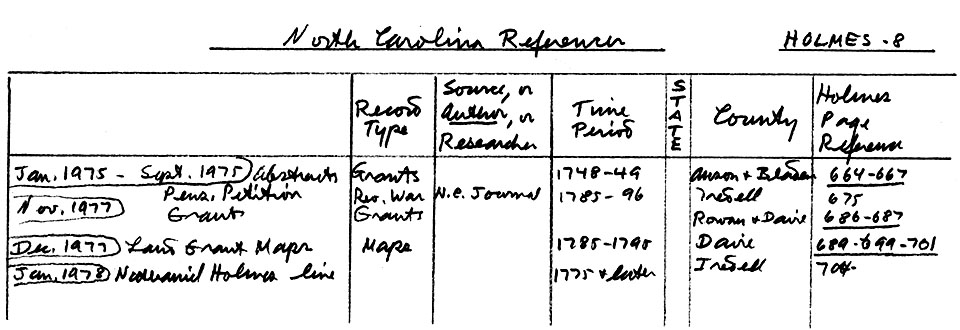 North Carolina References HOLMES - 8
Record Type
Source, or Author, or Researcher
Time Period
STATE
County
Holmes Page Reference
Jan. 1975 - Sept. 1975 Abstracts Grants 1748-49 Anson + Bladen 664-667
Pens, Petition Rev. War N.C. Journal 1785-96 Iredell 675
Nov. 1977 Grants Grants Rowan + Davie 686-687
Dec. 1977 Land Grant Maps Maps 1785-1795 Davie 689-699-701
Jan. 1978 Nathaniel Holmes line 1775 + later Iredell 704